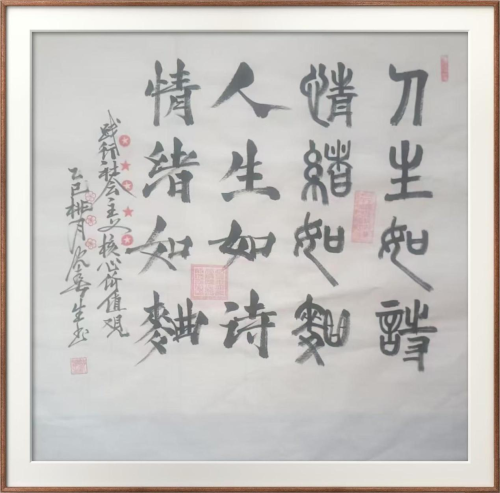 人生如詩
情緒如麯
人生如诗
情绪如麯
践行社会主义核心价值观
乙巳桃月